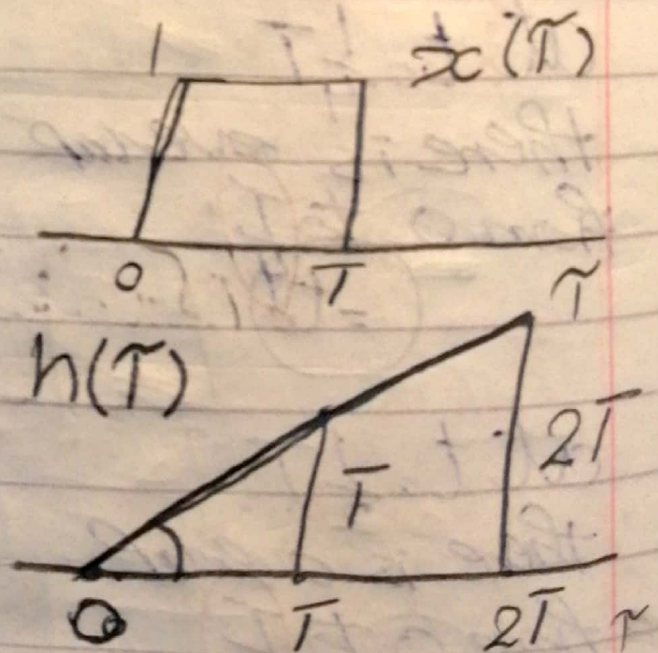 1 x(τ)
0 T τ
h(τ)
T 2T
0 T 2T τ